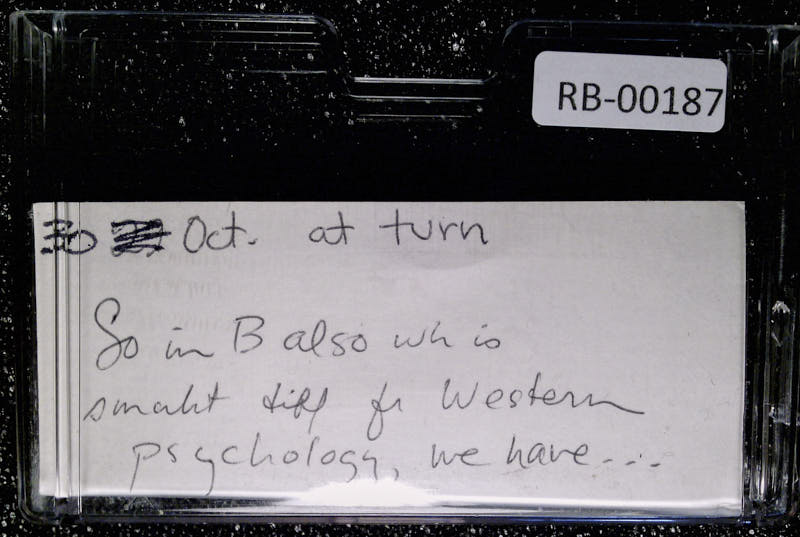 RB-00187
30 Oct. at turn
So in B also wh is
smwht diff fr Western
psychology, we have...